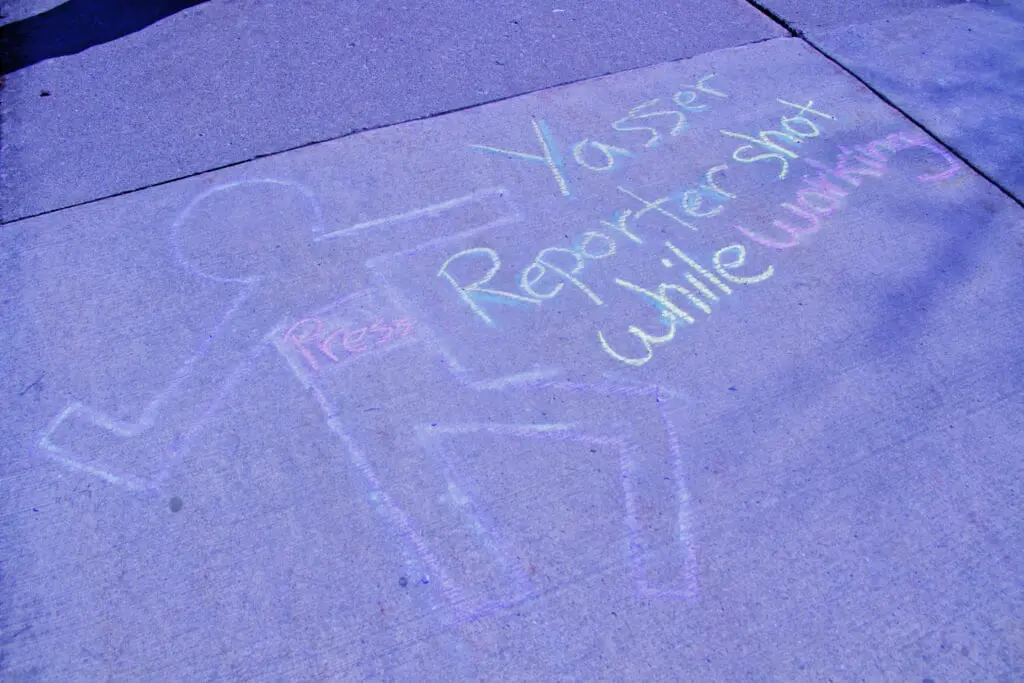 Yasser
Reporter shot
while working
Press